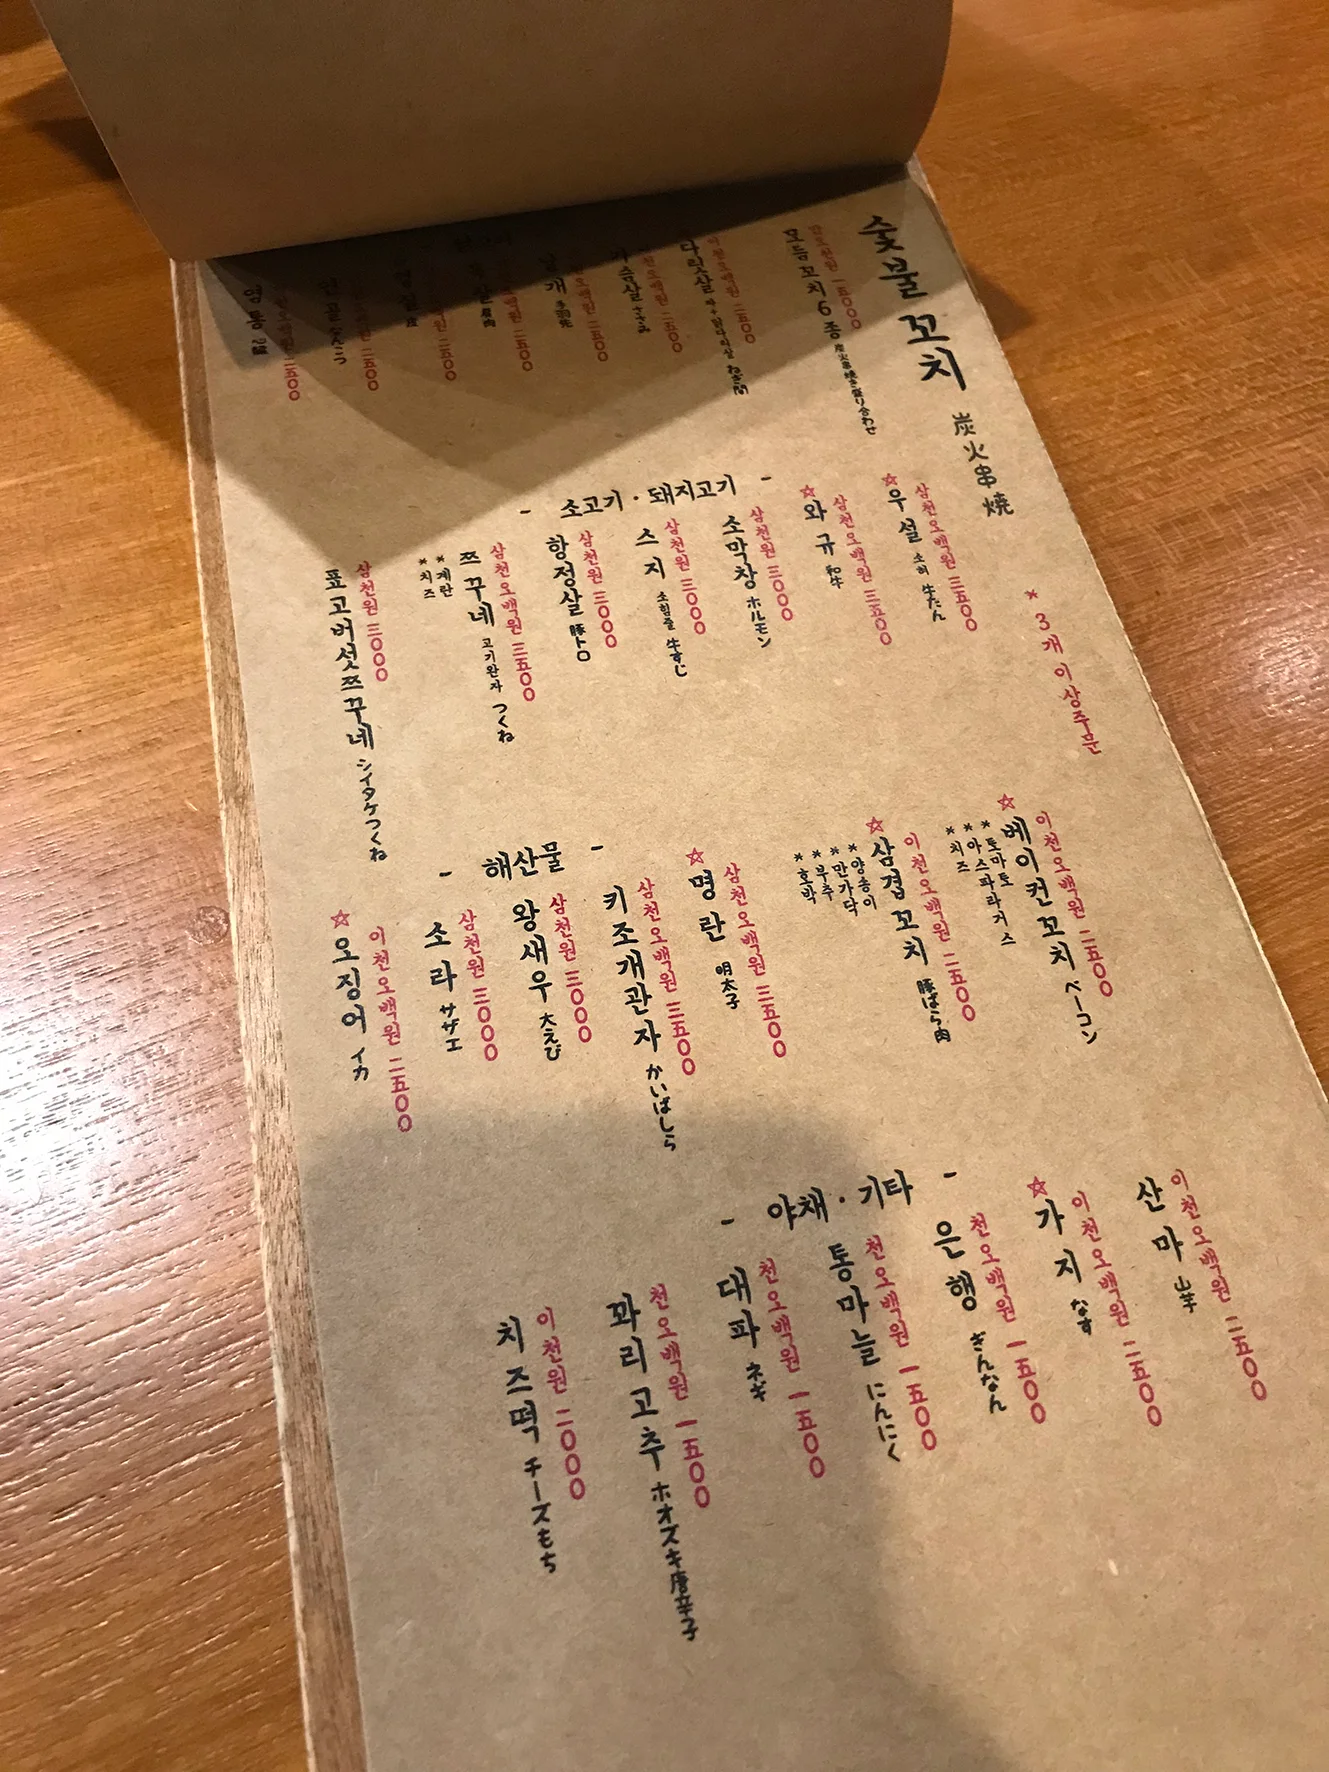 숯불꼬치 炭火串焼
* 3개 이상주문
一五000
모듬꼬치 6종 炭火串焼き盛り合わせ
二五00
다릿살 ねぎ間
二五00
가슴살 ささみ
二五00
개 手羽先
二五00
살 首肉
二五00
皮
二五00
なんこつ
二五00
염통
- 소고기 · 돼지고기 -
삼천오백원 三五00
☆우설 소혀 牛たん
삼천오백원 三五00
☆와규 和牛
삼천원 三000
소막창 ホルモン
삼천원 三000
스지 소힘줄 牛すじ
삼천원 三000
항정살 豚トロ
삼천오백원 三五00
쯔꾸네 고기완자 つくね
*계란
*치즈
삼천원 三000
표고버섯쯔꾸네 シイタケつくね
이천오백원 二五00
☆베이컨꼬치 ベーコン
*토마토
*아스파라거스
*치즈
이천오백원 二五00
☆삼겹꼬치 豚ばら肉
*양송이
*만가닥
*부추
*호박
- 해산물 -
삼천오백원 三五00
☆명란 明太子
삼천오백원 三五00
키조개관자 かいばしら
삼천원 三000
왕새우 大えび
삼천원 三000
소라 サザエ
이천오백원 二五00
☆오징어 イカ
- 야채 · 기타 -
이천오백원 二五00
산마 山芋
이천오백원 二五00
☆가지 なす
천오백원 一五00
은행 ぎんなん
천오백원 一五00
통마늘 にんにく
천오백원 一五00
대파 ネギ
천오백원 一五00
꽈리고추 ホオズキ唐辛子
이천원 二000
치즈떡 チーズもち